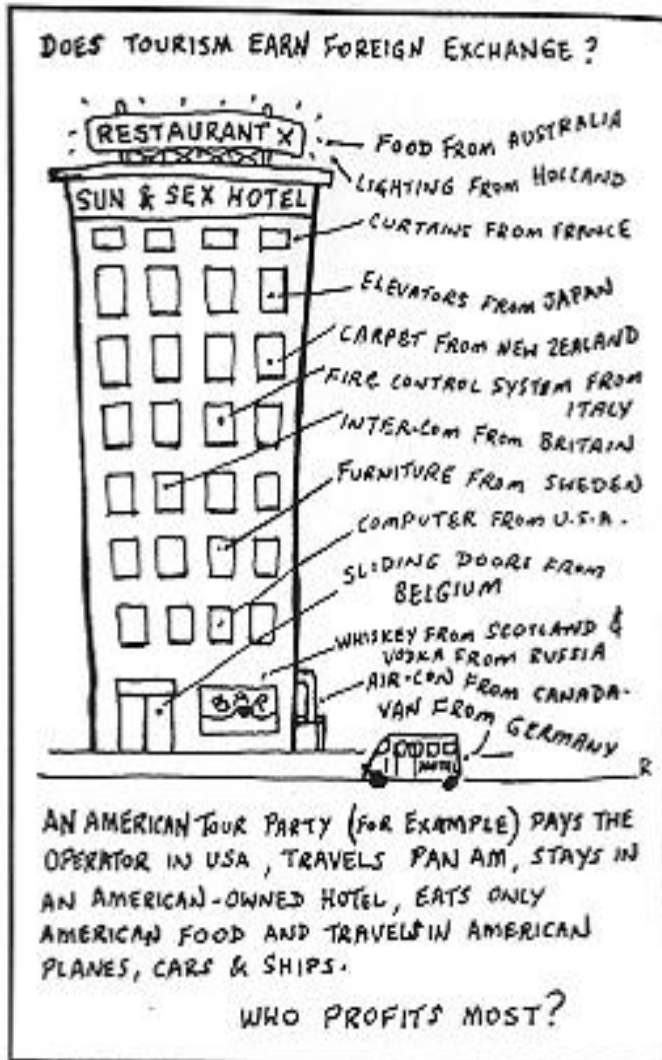 DOES TOURISM EARN FOREIGN EXCHANGE?
RESTAURANT X
FOOD FROM AUSTRALIA
LIGHTING FROM HOLLAND
SUN & SEX HOTEL
CURTAINS FROM FRANCE
ELEVATORS FROM JAPAN
CARPET FROM NEW ZEALAND
FIRE CONTROL SYSTEM FROM
ITALY
INTER-COM FROM BRITAIN
FURNITURE FROM SWEDEN
COMPUTER FROM U.S.A.
SLIDING DOORS FROM
BELGIUM
WHISKEY FROM SCOTLAND &
VODKA FROM RUSSIA
BAR
AIR-CON FROM CANADA.
VAN FROM GERMANY
HOTEL
R
AN AMERICAN TOUR PARTY (FOR EXAMPLE) PAYS THE
OPERATOR IN USA, TRAVELS PAN AM, STAYS IN
AN AMERICAN-OWNED HOTEL, EATS ONLY
AMERICAN FOOD AND TRAVELS IN AMERICAN
PLANES, CARS & SHIPS.
WHO PROFITS MOST?